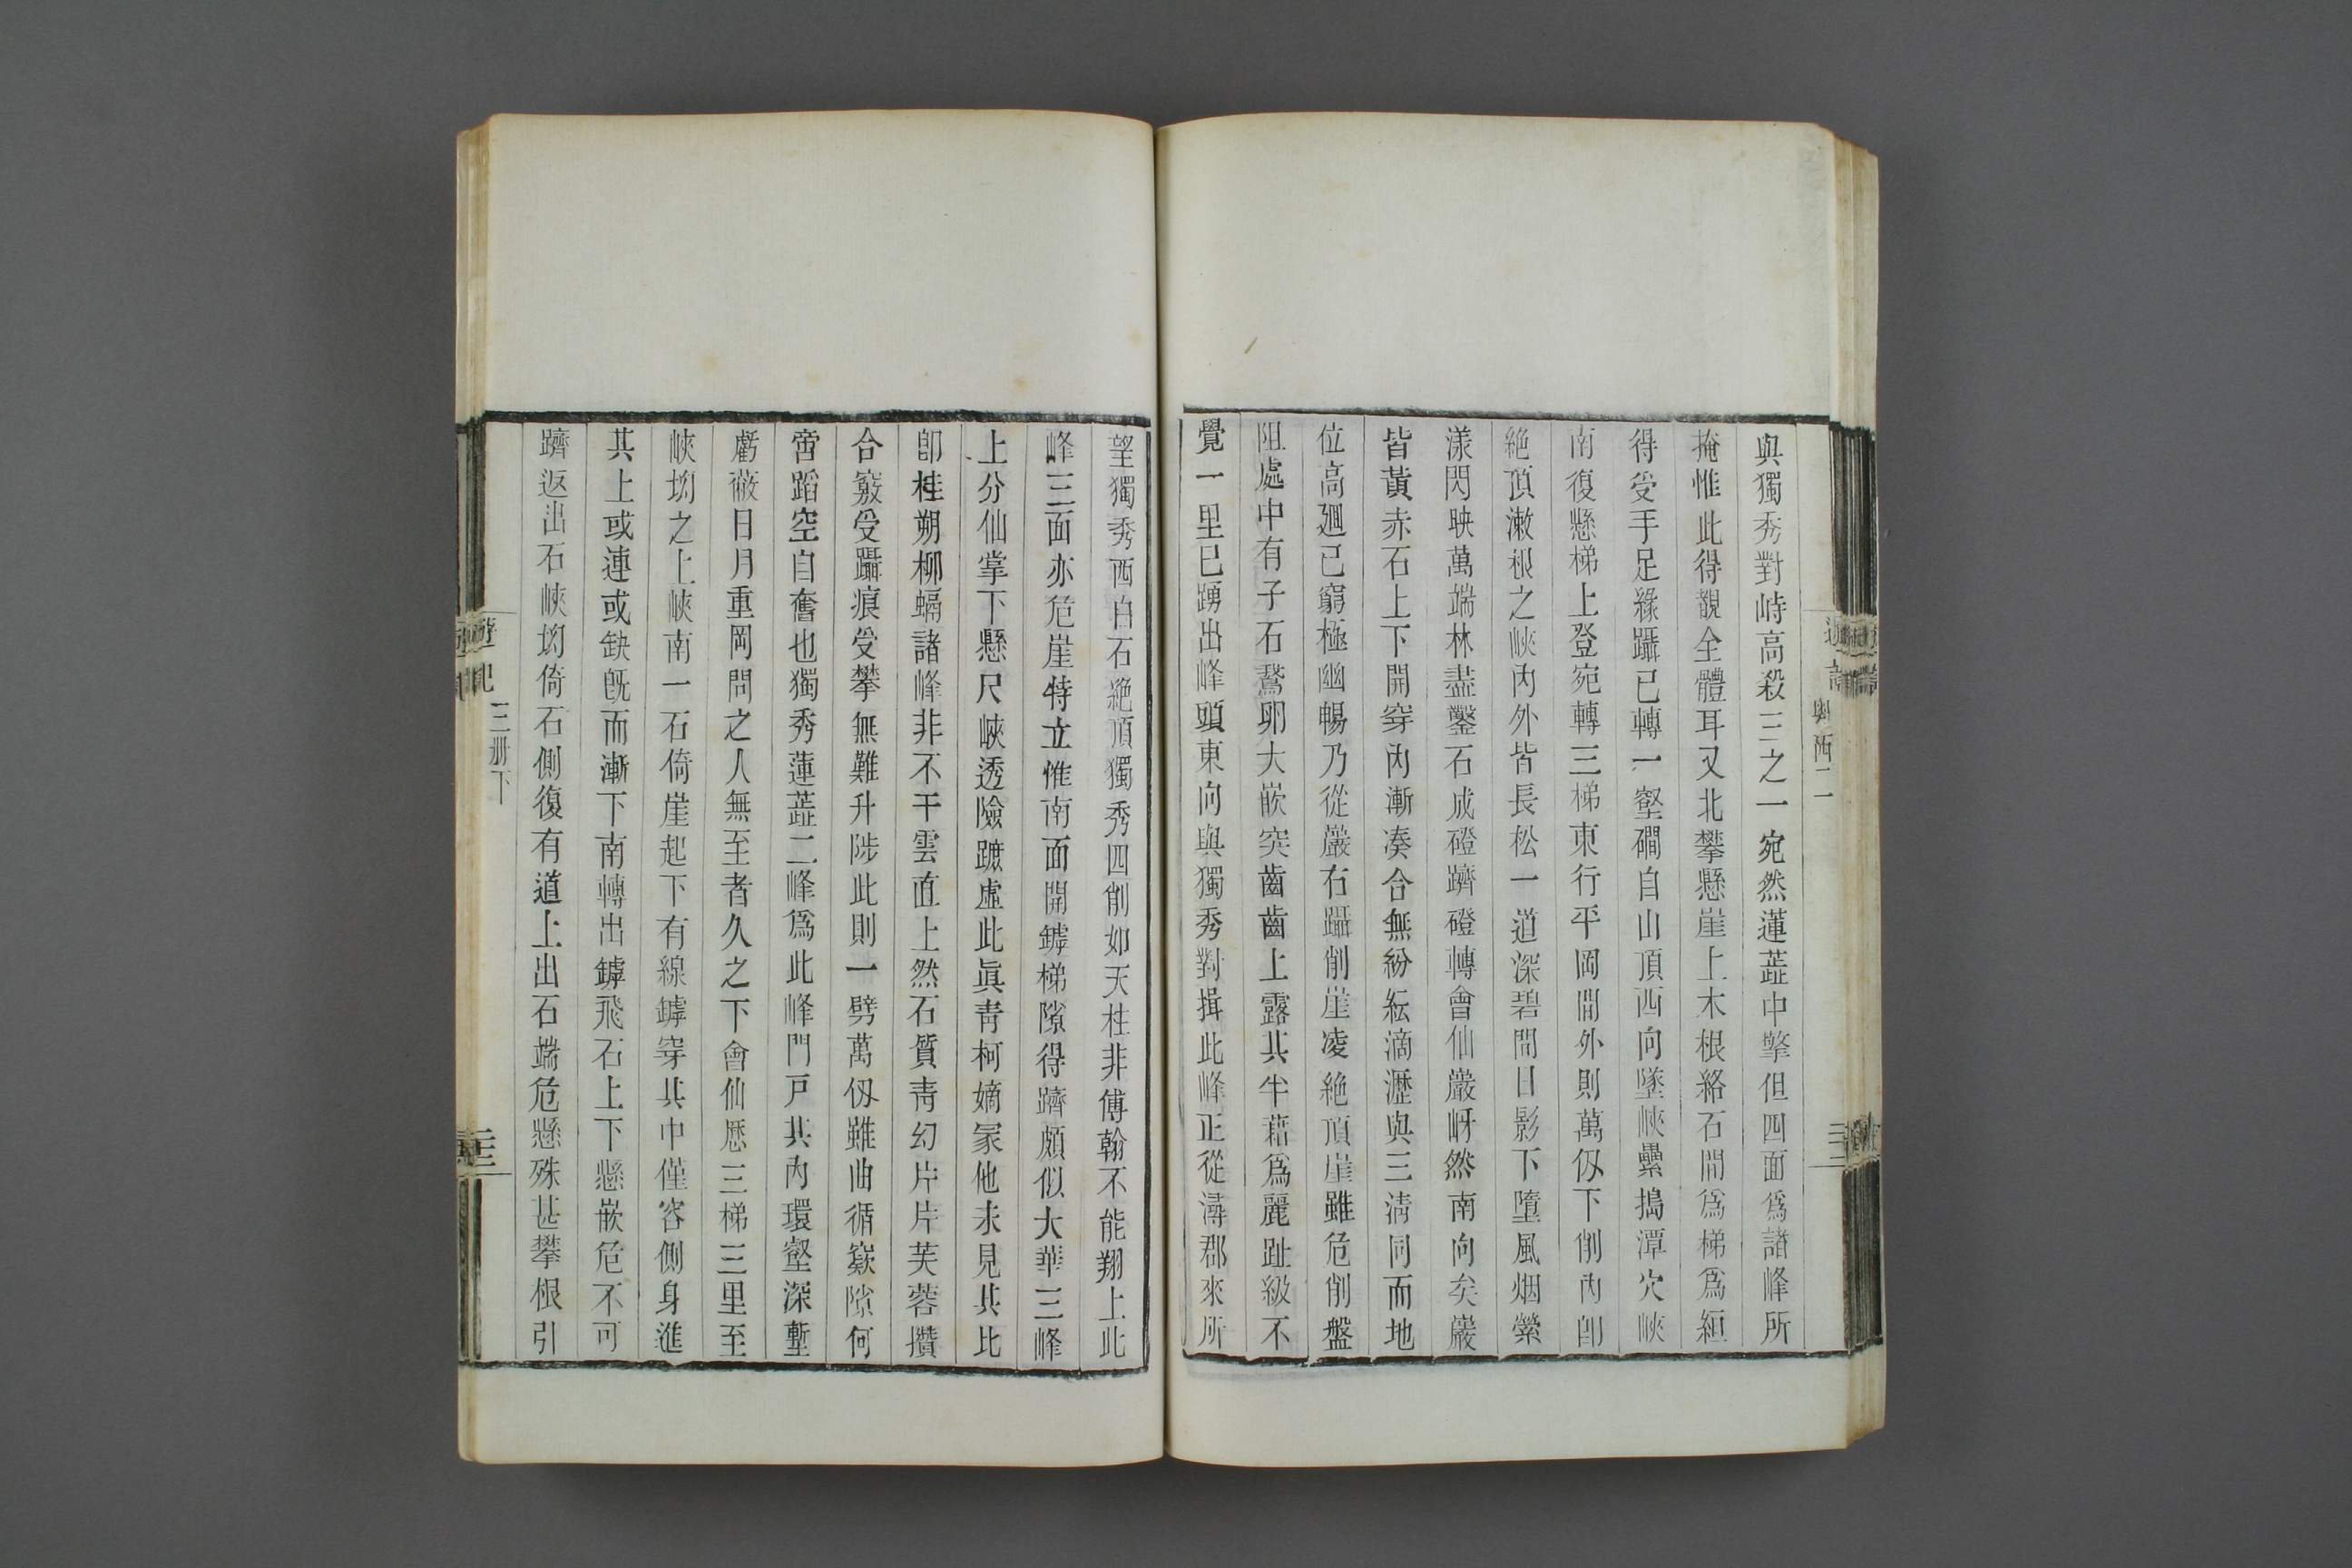 粵西二
與獨秀對峙高殺三之一宛然蓮蕋中擎但四面爲諸峰所
掩惟此得覩全體耳又北攀懸崖上木根絡石間爲梯爲絙
得受手足緣躡已轉一壑磵自山頂西向墜峽纍搗潭穴峽
南復懸梯上登宛轉三梯東行平岡間外則萬仭下削內卽
絶頂漱根之峽內外皆長松一道深碧間日影下墮風烟縈
漾閃映萬端林盡鑿石成磴躋磴轉會仙巖岈然南向矣巖
皆黃赤石上下開穿內漸凑合無紛紜滴瀝與三淸同而地
位高迴已窮極幽暢乃從巖右躡削崖凌絶頂崖雖危削盤
阻處中有子石鵞卵大嵌突齒齒上露其半藉爲麗趾級不
覺一里已踴出峰頭東向與獨秀對揖此峰正從潯郡來所
望獨秀西白石絶頂獨秀四削如天柱非傅翰不能翔上此
峰三面亦危崖特立惟南面開罅梯隙得躋頗似太華三峰
上分仙掌下懸尺峽透險蹠虛此眞靑柯嫡冢他未見其比
卽桂朔柳蝹諸峰非不干雲直上然石質靑幻片片芙蓉攢
合竅受躡痕受攀無難升陟此則一劈萬仭雖曲循嶔隙何
啻蹈空自奮也獨秀蓮蕋二峰爲此峰門戸其內環壑深塹
虧蔽日月重岡間之人無至者久之下會仙歷三梯三里至
峽坳之上峽南一石倚崖起下有線罅穿其中僅容側身進
其上或連或缺旣而漸下南轉出罅飛石上下懸嵌危不可
躋返出石峽坳倚石側復有道上出石端危懸殊甚攀根引
遊記
三册下